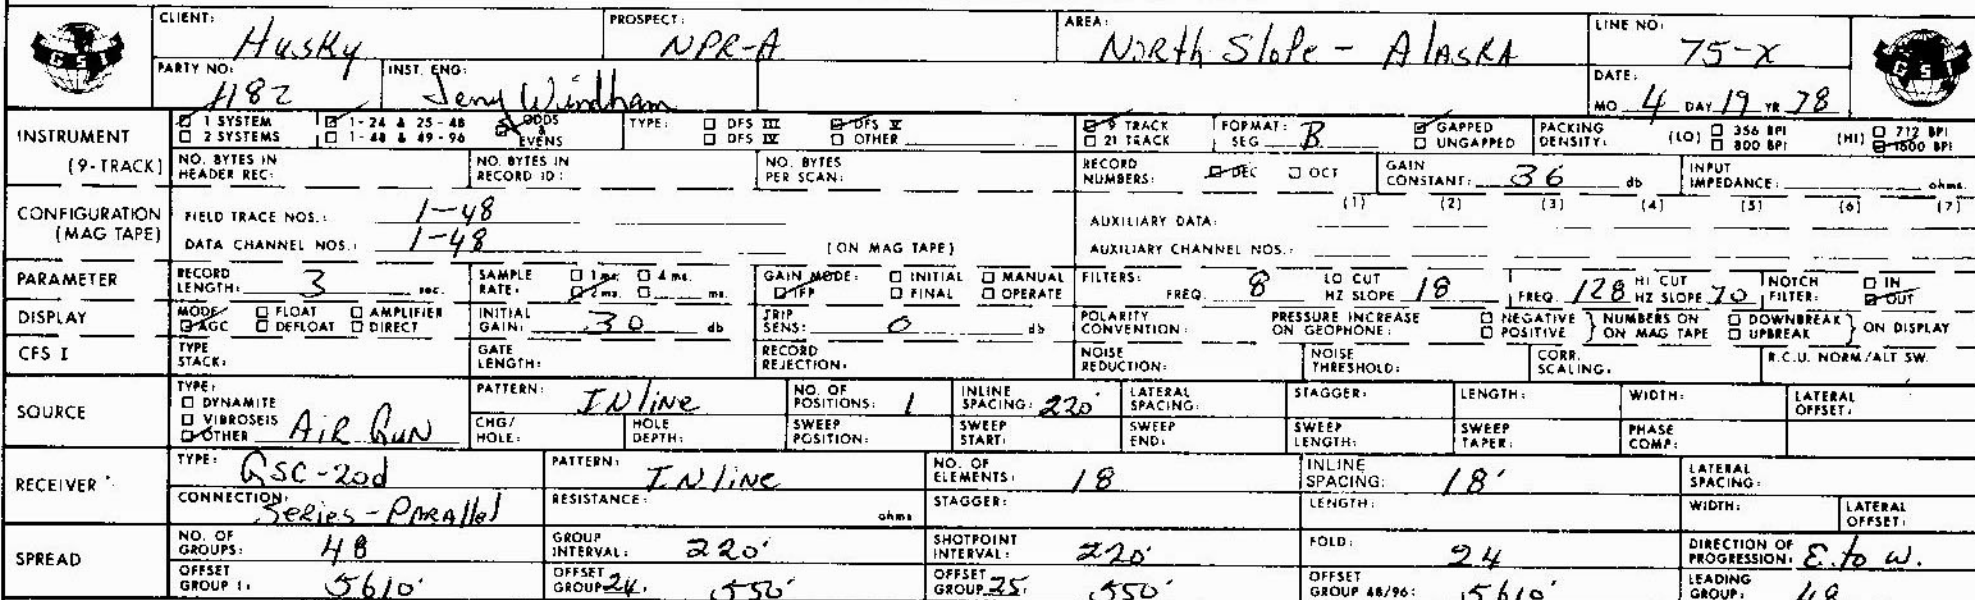 CLIENT: Husky PROSPECT: NPR-A AREA: North Slope - Alaska LINE NO: 75-X
GSI GSI
PARTY NO: 1182 INST. ENG: Jerry Windham DATE: MO 4 DAY 19 YR 78
INSTRUMENT (9-TRACK)
1 SYSTEM 1-24 & 25-48 ODDS & EVENS TYPE: DFS III DFS V 9 TRACK FORMAT: SEG B GAPPED PACKING DENSITY: (LO) 356 BPI (HI) 712 BPI
2 SYSTEMS 1-48 & 49-96 DFS IV OTHER 21 TRACK UNGAPPED 800 BPI 1600 BPI
NO. BYTES IN HEADER REC: NO. BYTES IN RECORD ID: NO. BYTES PER SCAN: RECORD NUMBERS: DEC OCT GAIN CONSTANT: 36 db INPUT IMPEDANCE: ohms.
CONFIGURATION (MAG TAPE)
FIELD TRACE NOS.: 1-48 AUXILIARY DATA: (1) (2) (3) (4) (5) (6) (7)
DATA CHANNEL NOS.: 1-48 (ON MAG TAPE) AUXILIARY CHANNEL NOS.:
PARAMETER RECORD LENGTH: 3 sec. SAMPLE RATE: 1 ms. 4 ms. 2 ms. ms. GAIN MODE: INITIAL MANUAL IFP FINAL OPERATE FILTERS: FREQ. 8 LO CUT HZ SLOPE 18 FREQ 128 HI CUT HZ SLOPE 70 NOTCH FILTER: IN OUT
DISPLAY MODE FLOAT AMPLIFIER AGC DEFLOAT DIRECT INITIAL GAIN: 30 db TRIP SENS: 0 db POLARITY CONVENTION: PRESSURE INCREASE ON GEOPHONE: NEGATIVE POSITIVE NUMBERS ON ON MAG TAPE DOWNBREAK UPBREAK ON DISPLAY
CFS I TYPE STACK: GATE LENGTH: RECORD REJECTION: NOISE REDUCTION: NOISE THRESHOLD: CORR. SCALING: R.C.U. NORM/ALT SW.
SOURCE TYPE: DYNAMITE VIBROSEIS OTHER Air Gun
PATTERN: INline NO. OF POSITIONS: 1 INLINE SPACING: 220' LATERAL SPACING: STAGGER: LENGTH: WIDTH: LATERAL OFFSET:
CHG/HOLE: HOLE DEPTH: SWEEP POSITION: SWEEP START: SWEEP END: SWEEP LENGTH: SWEEP TAPER: PHASE COMP:
RECEIVER TYPE: GSC-20d PATTERN: INline NO. OF ELEMENTS: 18 INLINE SPACING: 18' LATERAL SPACING:
CONNECTION: Series-Parallel RESISTANCE: ohms STAGGER: LENGTH: WIDTH: LATERAL OFFSET:
SPREAD NO. OF GROUPS: 48 GROUP INTERVAL: 220' SHOTPOINT INTERVAL: 220' FOLD: 24 DIRECTION OF PROGRESSION: E. to W.
OFFSET GROUP 1: 5610' OFFSET GROUP 24: 550' OFFSET GROUP 25: 550' OFFSET GROUP 48/96: 5610' LEADING GROUP: 48